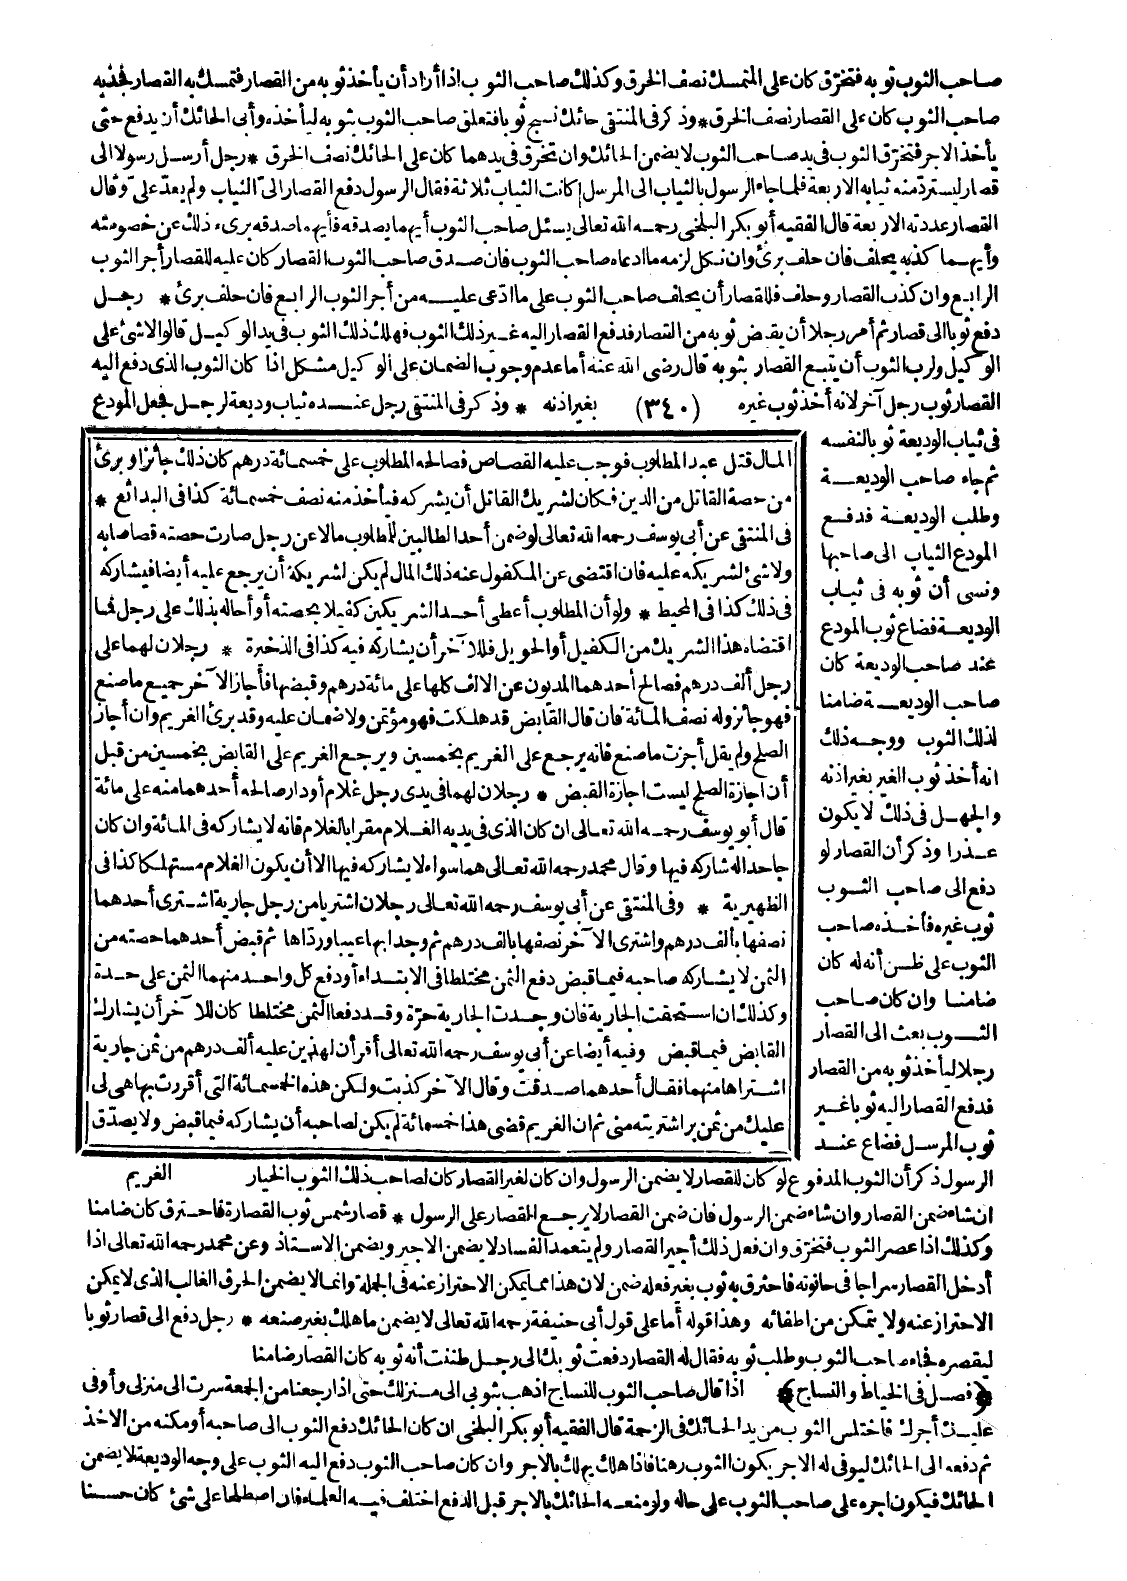 صاحب الثوب ثوبه فتخرّق كان على المتمسك نصف الخرق وكذلك صاحب الثوب اذا أراد أن يأخذ ثوبه من القصار فتمسك به القصار فجذبه
صاحب الثوب كان على القصار نصف الخرق * وذكر فى المنتقى حائك نسج ثوبا فتعلق صاحب الثوب بثوبه ليأخذه وأبى الحائك أن يدفع حتى
يأخذ الاجر فتخرّق الثوب فى يد صاحب الثوب لا يضمن الحائك وان تخرّق فى يدهما كان على الحائك نصف الخرق * رجل أرسل رسولا الى
قصار ليستردّ منه ثيابه الاربعة فلما جاء الرسول بالثياب الى المرسل كانت الثياب ثلاثة فقال الرسول دفع القصار الىّ الثياب ولم يعدّ علىّ وقال
القصار عددته الاربعة قال الفقيه أبو بكر البلخى رحمه الله تعالى يسئل صاحب الثوب أيهما يصدقه فأيهما صدقه برىء ذلك عن خصومته
وأيهما كذبه يحلف فان حلف برئ وان نكل لزمه ما ادعاه صاحب الثوب فان صدق صاحب الثوب القصار كان عليه للقصار أجر الثوب
الرابع وان كذب القصار وحلف فللقصار أن يحلف صاحب الثوب على ما ادّعى عليه من أجر الثوب الرابع فان حلف برئ * رجل
دفع ثوبا الى قصار ثم أمر رجلا أن يقبض ثوبه من القصار فدفع القصار اليه غير ذلك الثوب فهلك ذلك الثوب فى يد الوكيل قالوا لاشئ على
الوكيل ولرب الثوب أن يتبع القصار بثوبه قال رضى الله عنه أما عدم وجوب الضمان على الوكيل مشكل اذا كان الثوب الذى دفع اليه
القصار ثوب رجل آخر لانه أخذ ثوب غيره (٣٤٠) بغير اذنه * وذكر فى المنتقى رجل عنده ثياب وديعة لرجل فجعل المودع
فى ثياب الوديعة ثوبا لنفسه
ثم جاء صاحب الوديعة
وطلب الوديعة فدفع
المودع الثياب الى صاحبها
ونسى أن ثوبه فى ثياب
الوديعة فضاع ثوب المودع
عند صاحب الوديعة كان
صاحب الوديعة ضامنا
لذلك الثوب ووجه ذلك
انه أخذ ثوب الغير بغير اذنه
والجهل فى ذلك لا يكون
عذرا وذكر أن القصار لو
دفع الى صاحب الثوب
ثوب غيره فأخذه صاحب
الثوب على ظن أنه له كان
ضامنا وان كان صاحب
الثوب بعث الى القصار
رجلا ليأخذ ثوبه من القصار
فدفع القصار اليه ثوبا غير
ثوب المرسل فضاع عند
الرسول ذكر أن الثوب المدفوع لو كان للقصار لا يضمن الرسول وان كان لغير القصار كان لصاحب ذلك الثوب الخيار
ان شاء ضمن القصار وان شاء ضمن الرسول فان ضمن القصار لا يرجع القصار على الرسول * قصار شمس ثوب القصارة فاحترق كان ضامنا
وكذلك اذا عصر الثوب فتخرّق وان فعل ذلك أجير القصار ولم يتعمد الفساد لا يضمن الاجير ويضمن الاستاذ وعن محمد رحمه الله تعالى اذا
أدخل القصار سراجا فى حانوته فاحترق به ثوب بغير فعله ضمن لان هذا مما يمكن الاحتراز عنه فى الجملة وانما لا يضمن الحرق الغالب الذى لا يمكن
الاحتراز عنه ولا يتمكن من اطفائه وهذا قوله أما على قول أبى حنيفة رحمه الله تعالى لا يضمن ما هلك بغير صنعه * رجل دفع الى قصار ثوبا
ليقصره فجاء صاحب الثوب وطلب ثوبه فقال له القصار دفعت ثوبك الى رجل ظننت أنه ثوبه كان القصار ضامنا
﴿فصل فى الخياط والنساج﴾ اذا قال صاحب الثوب للنساج اذهب بثوبى الى منزلك حتى اذا رجعنا من الجمعة سرت الى منزلى وأوفى
عليك أجرك فاختلس الثوب من يد الحائك فى الزحمة قال الفقيه أبو بكر البلخى ان كان الحائك دفع الثوب الى صاحبه أو مكنه من الاخذ
ثم دفعه الى الحائك ليوفى له الاجر يكون الثوب رهنا فاذا هلك يهلك بالاجر وان كان صاحب الثوب دفع اليه الثوب على وجه الوديعة لا يضمن
الحائك فيكون اجره على صاحب الثوب على حاله ولو منعه الحائك بالاجر قبل الدفع اختلف فيه العلماء فان اصطلحا على شئ كان حسنا
المال قتل عبد المطلوب فوجب عليه القصاص فصالحه المطلوب على خمسمائة درهم كان ذلك جائزا وبرئ
من حصة القاتل من الدين فكان لشريك القاتل أن يشركه فيأخذ منه نصف خمسمائة كذا فى البدائع *
فى المنتقى عن أبى يوسف رحمه الله تعالى لو ضمن أحد الطالبين للمطلوب مالا عن رجل صارت حصته قصاصا به
ولا شئ لشريكه عليه فان اقتضى عن المكفول عنه ذلك المال لم يكن لشريكه أن يرجع عليه أيضا فيشاركه
فى ذلك كذا فى المحيط * ولو أن المطلوب أعطى أحد الشريكين كفيلا بحصته أو أحاله بذلك على رجل فما
اقتضاه هذا الشريك من الكفيل أو الحويل فللآخر أن يشاركه فيه كذا فى الذخيرة * رجلان لهما على
رجل ألف درهم فصالح أحدهما المديون عن الالف كلها على مائة درهم وقبضها فأجاز الآخر جميع ما صنع
فهو جائز وله نصف المائة فان قال القابض قد هلكت فهو مؤتمن ولا ضمان عليه وقد برئ الغريم وان أجاز
الصلح ولم يقل أجزت ما صنع فانه يرجع على الغريم بخمسين ويرجع الغريم على القابض بخمسين من قبل
أن اجازة الصلح ليست اجازة القبض * رجلان لهما فى يدى رجل غلام أو دار صالحه أحدهما منه على مائة
قال أبو يوسف رحمه الله تعالى ان كان الذى فى يديه الغلام مقرا بالغلام فانه لا يشاركه فى المائة وان كان
جاحدا له شاركه فيها وقال محمد رحمه الله تعالى هما سواء لا يشاركه فيها الا أن يكون الغلام مستهلكا كذا فى
الظهيرية * وفى المنتقى عن أبى يوسف رحمه الله تعالى رجلان اشتريا من رجل جارية اشترى أحدهما
نصفها بألف درهم واشترى الآخر نصفها بألف درهم ثم وجدا بها عيبا ورداها ثم قبض أحدهما حصته من
الثمن لا يشاركه صاحبه فيما قبض دفع الثمن مختلطا فى الابتداء أو دفع كل واحد منهما الثمن على حدة
وكذلك ان استحقت الجارية فان وجدت الجارية حرّة وقد دفعا الثمن مختلطا كان للآخر أن يشارك
القابض فيما قبض وفيه أيضا عن أبى يوسف رحمه الله تعالى أقر أن لهذين عليه ألف درهم من ثمن جارية
اشتراها منهما فقال أحدهما صدقت وقال الآخر كذبت ولكن هذه الخمسمائة التى أقررت بها هى لى
عليك من ثمن بر اشتريته منى ثم ان الغريم قضى هذا خمسمائة لم يكن لصاحبه أن يشاركه فيما قبض ولا يصدّق
الغريم